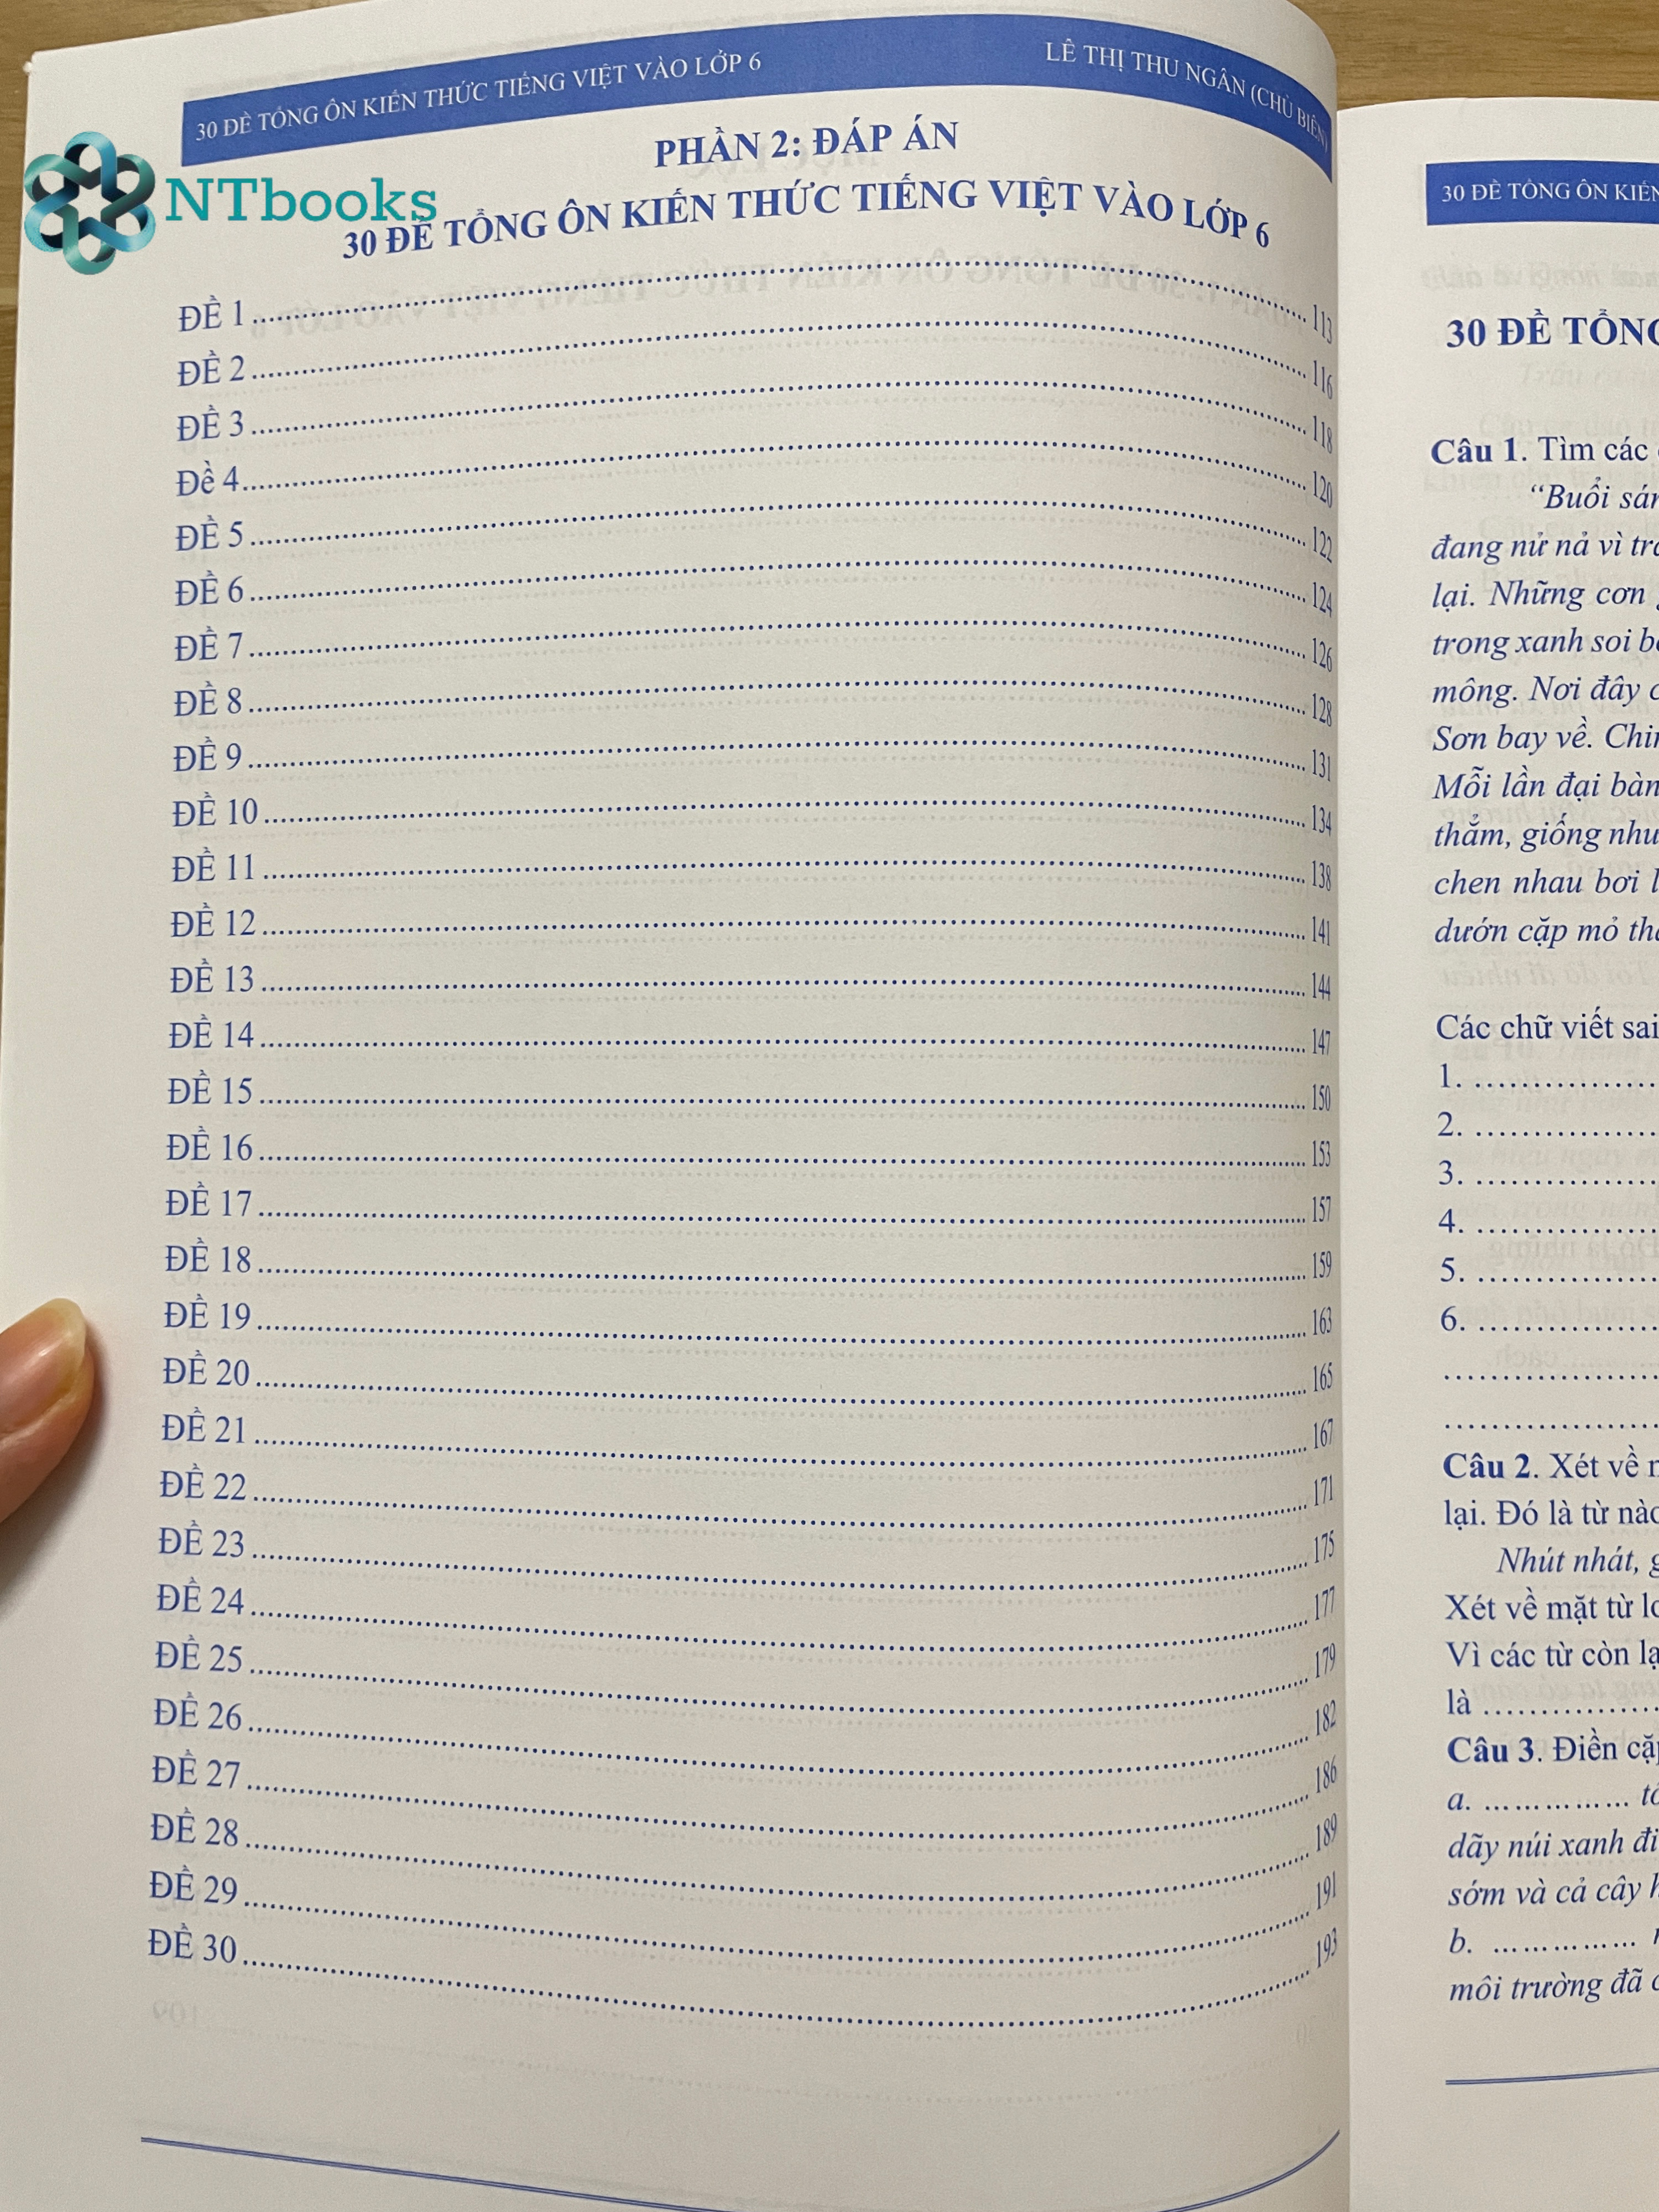 30 ĐỀ TỔNG ÔN KIẾN THỨC TIẾNG VIỆT VÀO LỚP 6
LÊ THỊ THU NGÂN (CHỦ BIÊN)
NTbooks
PHẦN 2: ĐÁP ÁN
30 ĐỀ TỔNG ÔN KIẾN THỨC TIẾNG VIỆT VÀO LỚP 6
ĐỀ 1 ........ 113
ĐỀ 2 ........ 116
ĐỀ 3 ........ 118
Đề 4 ........ 120
ĐỀ 5 ........ 122
ĐỀ 6 ........ 124
ĐỀ 7 ........ 126
ĐỀ 8 ........ 128
ĐỀ 9 ........ 131
ĐỀ 10 ........ 134
ĐỀ 11 ........ 138
ĐỀ 12 ........ 141
ĐỀ 13 ........ 144
ĐỀ 14 ........ 147
ĐỀ 15 ........ 150
ĐỀ 16 ........ 153
ĐỀ 17 ........ 157
ĐỀ 18 ........ 159
ĐỀ 19 ........ 163
ĐỀ 20 ........ 165
ĐỀ 21 ........ 167
ĐỀ 22 ........ 171
ĐỀ 23 ........ 175
ĐỀ 24 ........ 177
ĐỀ 25 ........ 179
ĐỀ 26 ........ 182
ĐỀ 27 ........ 186
ĐỀ 28 ........ 189
ĐỀ 29 ........ 191
ĐỀ 30 ........ 193
30 ĐỀ TỔNG ÔN
30 ĐỀ TỔNG
Câu 1. Tìm các
"Buổi
đang nử nả vì
lại. Những cơn
trong xanh soi
mông. Nơi đây
Sơn bay về.
Mỗi lần đại
thẳm, giống
chen nhau bơi
dướn cặp mỏ
Các chữ viết sai
1. ........
2. ........
3. ........
4. ........
5. ........
6. ........
Câu 2. Xét về
lại. Đó là từ
Nhút nhát,
Xét về mặt từ
Vì các từ còn
là ........
Câu 3. Điền
a. ........
dãy núi xanh
sớm và cả cây
b. ........
môi trường đã